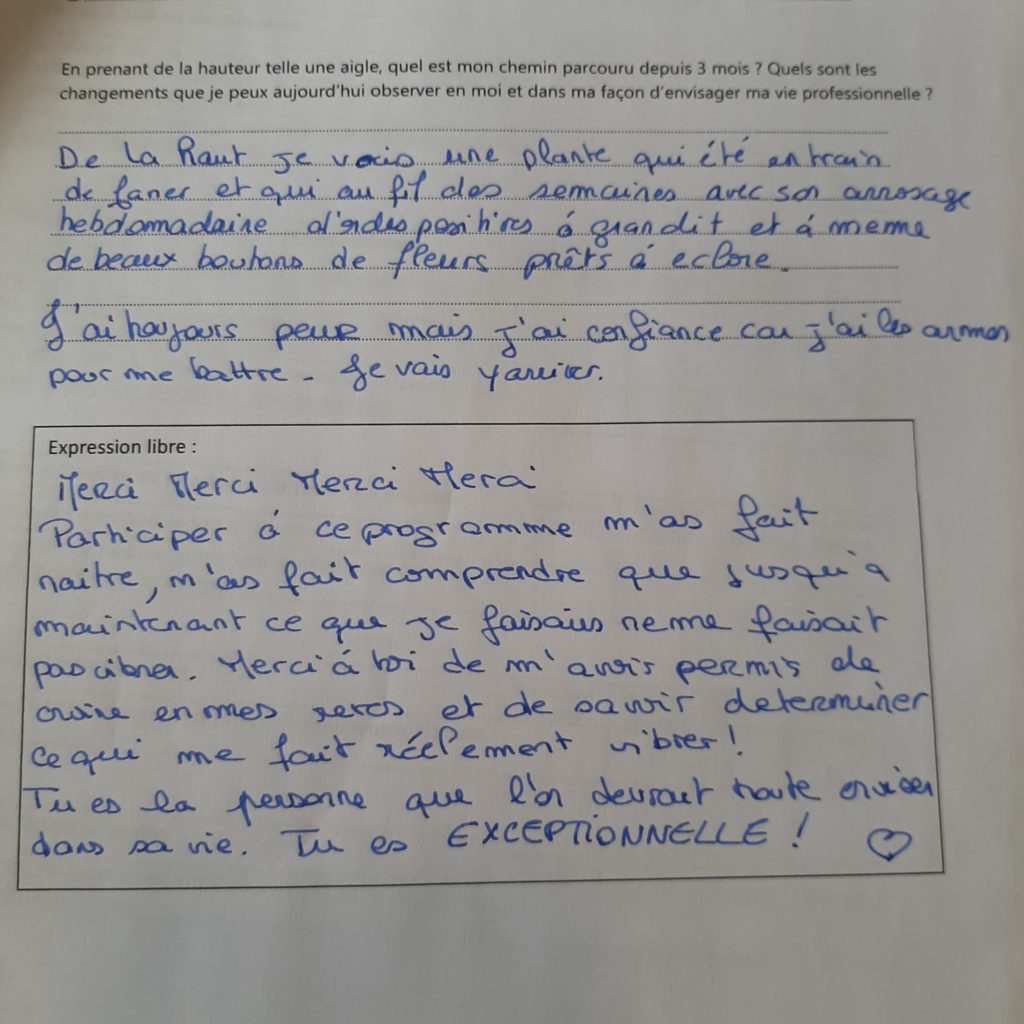 En prenant de la hauteur telle une aigle, quel est mon chemin parcouru depuis 3 mois ? Quels sont les
changements que je peux aujourd'hui observer en moi et dans ma façon d'envisager ma vie professionnelle ?
De la haut je vois une plante qui été en train
de faner et qui au fil des semaines avec son arrosage
hebdomadaire d'ondes positives à grandit et à meme
de beaux boutons de fleurs prêts à eclore.
J'ai toujours peur mais j'ai confiance car j'ai les armes
pour me battre. Je vais y arriver.
Expression libre :
Merci Merci Merci Merci
Participer à ce programme m'as fait
naitre, m'as fait comprendre que jusqu'à
maintenant ce que je faisais ne me faisait
pas vibrer. Merci à toi de m'avoir permis de
croire en mes reves et de savoir determiner
ce qui me fait réellement vibrer !
Tu es la personne que l'on devrait toute croiser
dans sa vie. Tu es EXCEPTIONNELLE !